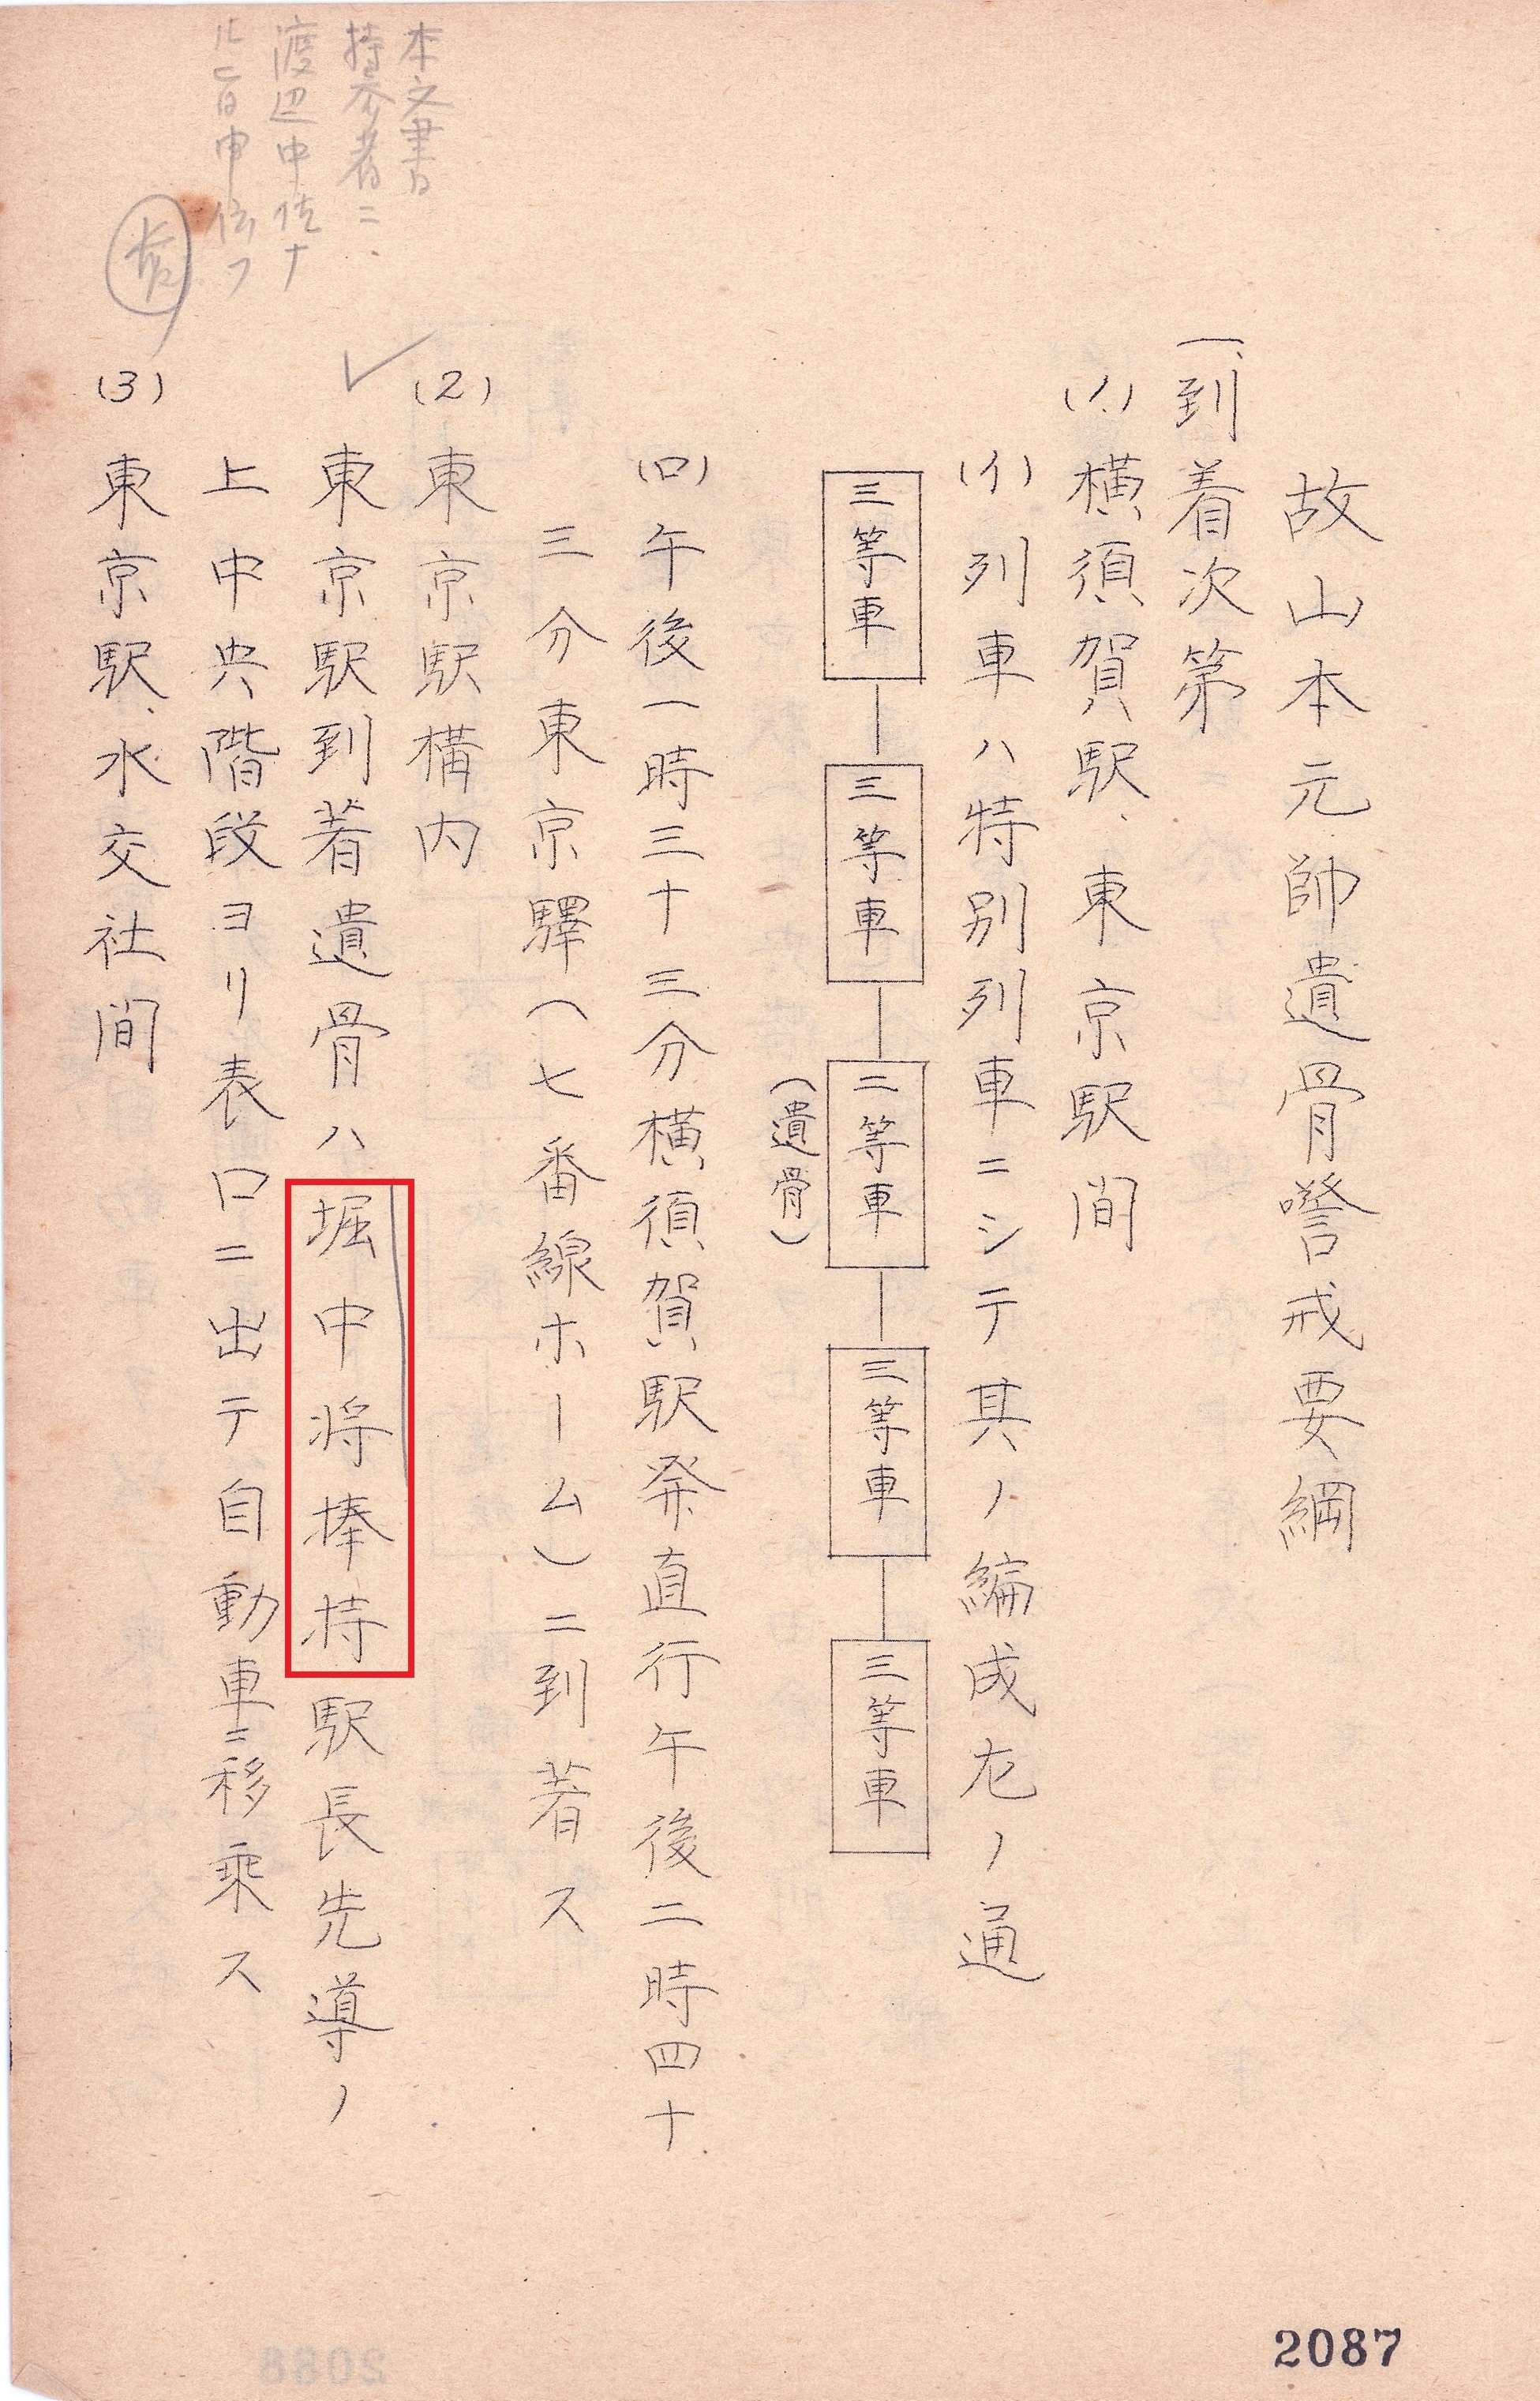 本文書ハ
持参者ニ
渡辺中佐ナ
ル旨申傳フ
故山本元帥遺骨警戒要綱
一、到着次第
(1)横須賀駅、東京駅間
(イ)列車ハ特別列車ニシテ其ノ編成左ノ通
三等車 三等車 二等車 三等車 三等車
(遺骨)
(ロ)午後一時三十三分横須賀駅発直行午後二時四十
三分東京驛(七番線ホーム)ニ到着ス
(2)東京駅構内
東京駅到着遺骨ハ堀中将捧持駅長先導ノ
上中央階段ヨリ表口ニ出テ自動車ニ移乗ス
(3)東京駅、水交社間
2087